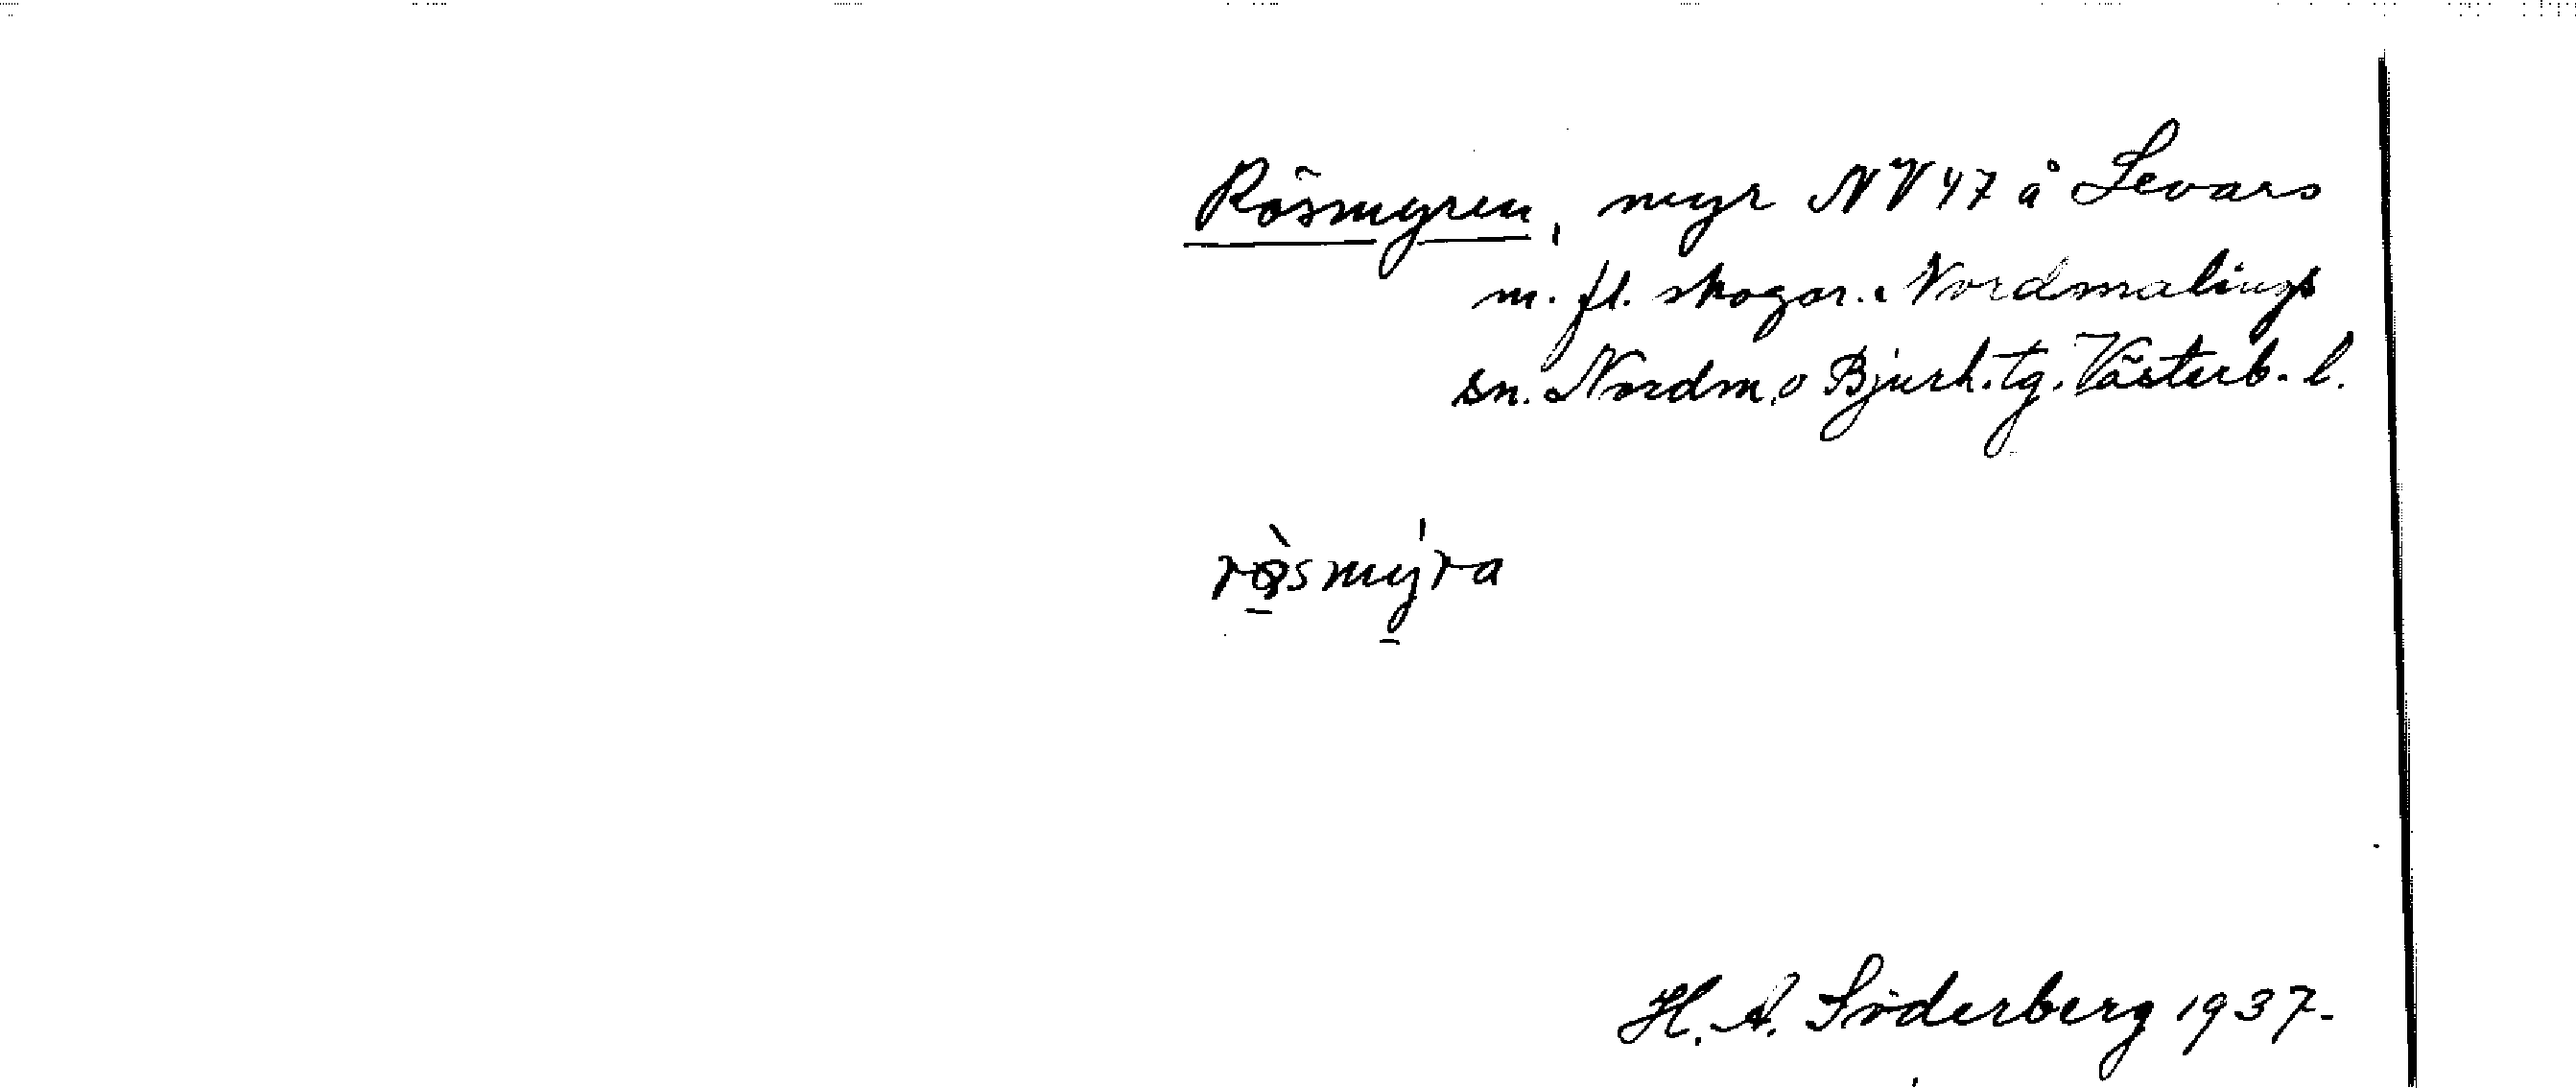 Rösmyren, myr NV 47 å Levars
m. fl. skogar. Nordmalings
sn. Nordm. o Bjurh. tg. Västerb. l.
rø̀smýra
H. A. Söderberg 1937.